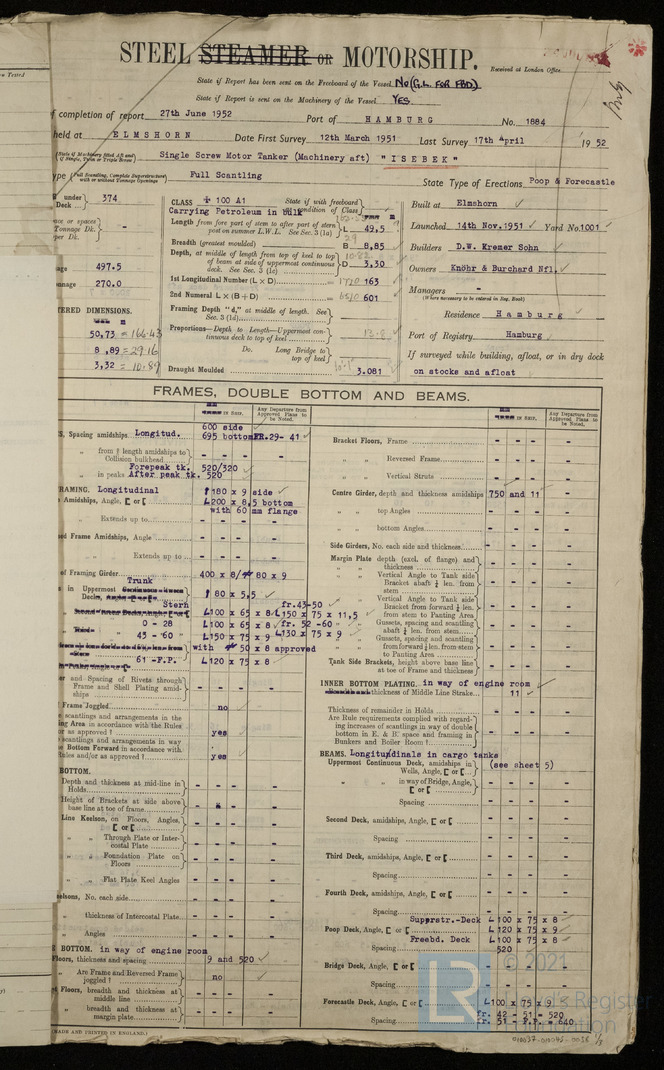 STEEL STEAMER OR MOTORSHIP.
Received at London Office
State if Report has been sent on the Freeboard of the Vessel No (G.L. FOR FBD.)
State if Report is sent on the Machinery of the Vessel YES
f completion of report 27th June 1952 Port of HAMBURG No. 1884
held at ELMSHORN Date First Survey 12th March 1951 Last Survey 17th April 1952
(State if Machinery fitted Aft and if Single, Twin or Triple Screw) Single Screw Motor Tanker (Machinery aft) "ISEBEK"
ype (Full Scantling, Complete Superstructure with or without Tonnage Openings) Full Scantling State Type of Erections Poop & Forecastle
under Deck 374
ce or spaces Tonnage Dk. -
per Dk.
nage 497.5
nage 270.0
TERED DIMENSIONS.
50,73 = 166.43
8,89 = 29.16
3,32 = 10.89
CLASS ✠ 100 A1 State if with freeboard as condition of Class
Carrying Petroleum in Bulk
Length from fore part of stem to after part of stern post on summer L.W.L. See Sec. 3 (1a) L 49,5
Breadth (greatest moulded) B 8,85
Depth, at middle of length from top of keel to top of beam at side of uppermost continuous deck. See Sec. 3 (1c) D 3,30
1st Longitudinal Number (L × D) 163
2nd Numeral L × (B + D) 601
Framing Depth "d," at middle of length. See Sec. 3 (1d)
Proportions—Depth to Length—Uppermost continuous deck to top of keel 
Do. Long Bridge to top of keel
Draught Moulded 3.081
Built at Elmshorn
Launched 14th Nov.1951 Yard No. 1001
Builders D.W. Kremer Sohn
Owners Knöhr & Burchard Nfl.
Managers -
(Where necessary to be entered in Reg. Book)
Residence Hamburg
Port of Registry Hamburg
If surveyed while building, afloat, or in dry dock
on stocks and afloat
FRAMES, DOUBLE BOTTOM AND BEAMS.
IN SHIP.
Any Departure from Approved Plans to be Noted.
IN SHIP.
Any Departure from Approved Plans to be Noted.
S, Spacing amidships Longitud. 600 side
695 bottom FR.29- 41
" from ⅕ length amidships to Collision bulkhead - - - -
" in peaks Forepeak tk. 520/320
After peak tk. 520
RAMING. Longitudinal 180 x 9 side
Amidships, Angle, [ or [ L200 x 8,5 bottom
with 60 mm flange
Extends up to - - - -
ed Frame Amidships, Angle - - - -
" Extends up to - - - -
of Framing Girder 400 x 8/ 80 x 9
Trunk
s in Uppermost 80 x 5,5
Stern fr.43-50
L100 x 65 x 8 L150 x 75 x 11,5
0 - 28 L100 x 65 x 8 fr. 52 -60
43 - 60 L150 x 75 x 9 L130 x 75 x 9
with 50 x 8 approved
61 -F.P. L120 x 75 x 8
er and Spacing of Rivets through Frame and Shell Plating amidships - - - -
Frame Joggled no
e scantlings and arrangements in the ing Area in accordance with the Rules or as approved ! yes
scantlings and arrangements in way e Bottom Forward in accordance with Rules and/or as approved ! yes
BOTTOM.
Depth and thickness at mid-line in Holds - - - -
Height of Brackets at side above base line at toe of frame - - -
Line Keelson, on Floors, Angles, [ or [ - - - -
" " Through Plate or Intercostal Plate - - - -
" " Foundation Plate on Floors - - - -
" " Flat Plate Keel Angles - - - -
elsons, No. each side - - - -
" thickness of Intercostal Plate - - - -
" Angles - - - -
E BOTTOM. in way of engine room
Floors, thickness and spacing 9 and 520
" Are Frame and Reversed Frame joggled ! no
et Floors, breadth and thickness at middle line - - - -
" breadth and thickness at margin plate - - - -
(MADE AND PRINTED IN ENGLAND.)
Bracket Floors, Frame - - - -
" " Reversed Frame - - - -
" " Vertical Struts - - - -
Centre Girder, depth and thickness amidships 750 and 11
" " top Angles - - - -
" " bottom Angles - - - -
Side Girders, No. each side and thickness - - - -
Margin Plate depth (excl. of flange) and thickness - - - -
" " Vertical Angle to Tank side Bracket abaft ¼ len. from stem - - - -
" " Vertical Angle to Tank side Bracket from forward ¼ len. from stem to Panting Area - - - -
" " Gussets, spacing and scantling abaft ¼ len. from stem - - - -
" " Gussets, spacing and scantling from forward ¼ len. from stem to Panting Area - - - -
Tank Side Brackets, height above base line at toe of Frame and thickness - - - -
INNER BOTTOM PLATING. in way of engine room
thickness of Middle Line Strake 11
Thickness of remainder in Holds - - - -
Are Rule requirements complied with regarding increases of scantlings in way of double bottom in E. & B' space and framing in Bunkers and Boiler Room ! - - - -
BEAMS. Longitudinals in cargo tanks
Uppermost Continuous Deck, amidships in Wells, Angle, [ or [ (see sheet 5)
" " in way of Bridge, Angle, [ or [ - - - -
Spacing - - - -
Second Deck, amidships, Angle, [ or [ - - - -
Spacing - - - -
Third Deck, amidships, Angle, [ or [ - - - -
Spacing - - - -
Fourth Deck, amidships, Angle, [ or [ - - - -
Spacing - - - -
Supprstr.-Deck L 100 x 75 x 8
Poop Deck, Angle, [ or [ L 120 x 75 x 9
Freebd. Deck L 100 x 75 x 8
Spacing 520
Bridge Deck, Angle, [ or [ - - - -
Spacing - - - -
Forecastle Deck, Angle, [ or [ L100 x 75 x 9
fr. 42 - 51 - 520
Spacing fr. 51 - F.P. - 640
© 2021
Lloyd's Register
Foundation